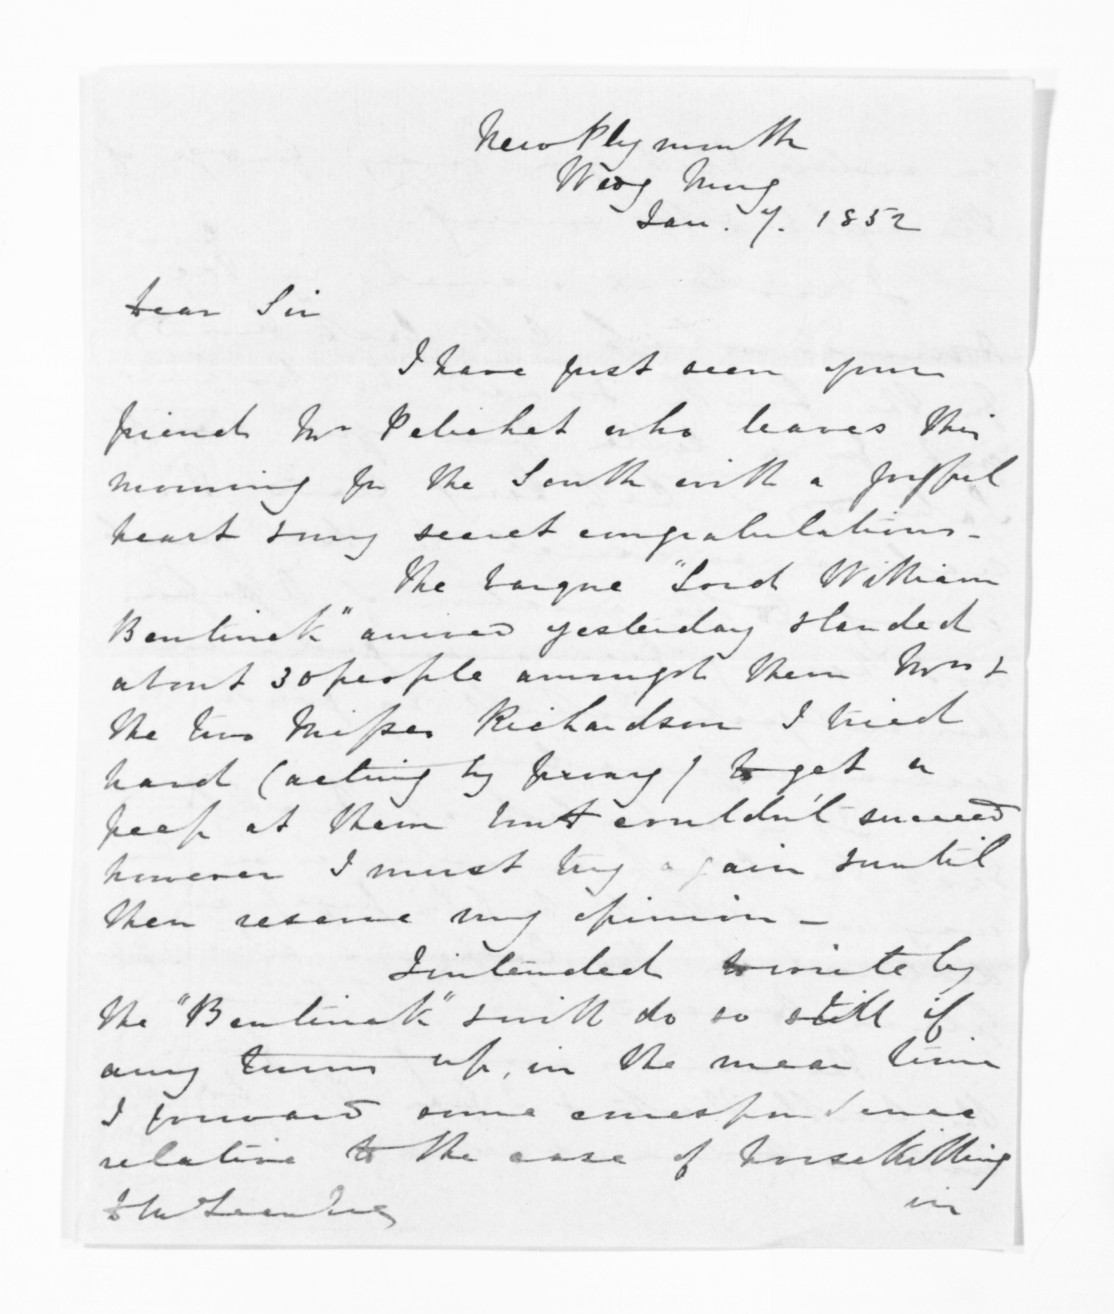 New Plymouth
Wedy Mng
Jan. 7. 1852
Dear Sir
I have just seen your
friend Mr Pelichet who leaves this
morning for the South with a joyful
heart & my secret congratulations -
The barque "Lord William
Bentinck" arrived yesterday & landed
about 30 people amongst them Mrs &
the two Misses Richardson I tried
hard (acting by proxy) to get a
peep at them but couldn't succeed
however I must try again & until
then reserve my opinion -
I intended to write by
the "Bentinck" & will do so still if
any turns up, in the mean time
I forward some correspondence
relative to the case of horse killing
D McLean Esq in